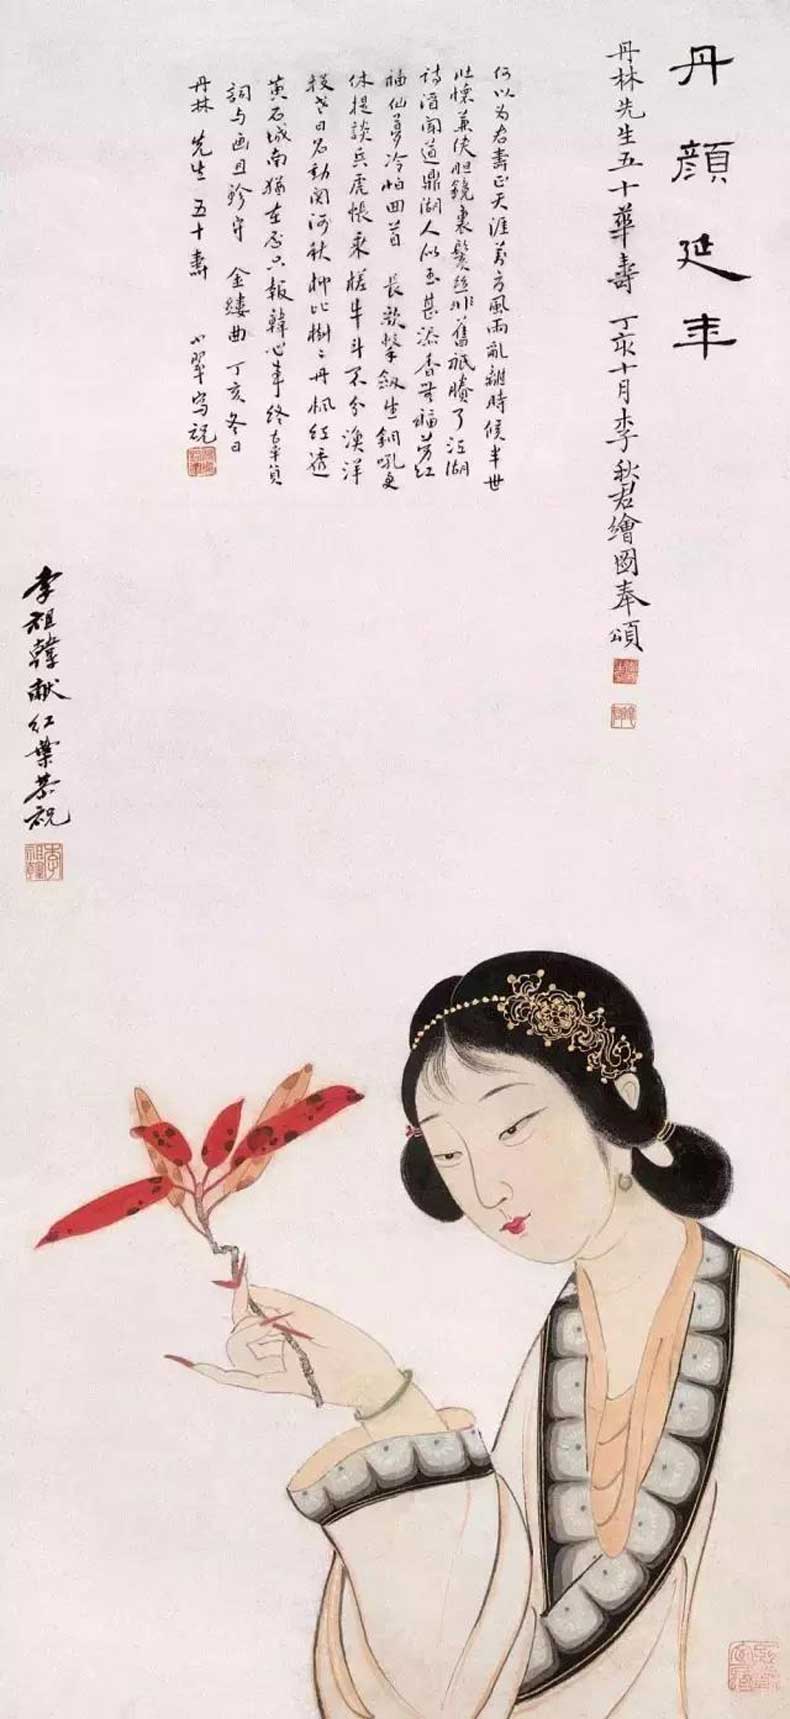 丹顏延年
丹林先生五十華壽 丁亥十月李秋君繪圖奉頌
何以为君壽正天涯萬方風雨亂離時候半世
壯懷兼俠胆鏡裏鬢絲非舊祇賸了江湖
詩酒聞道鼎湖人似玉甚添香無福芳紅
袖仙夢冷怕回首 長歌擊劍生銅吼更
休提談兵虎帳乘槎牛斗不分漁洋
投老日名動関河秋柳比樹〻丹楓紅透
黃石城南猶在否只報韓心事終辜負
詞与画且珍守 金縷曲 丁亥冬日
丹林先生五十壽 小翠寫祝
李祖韓献紅葉恭祝
李祖韓